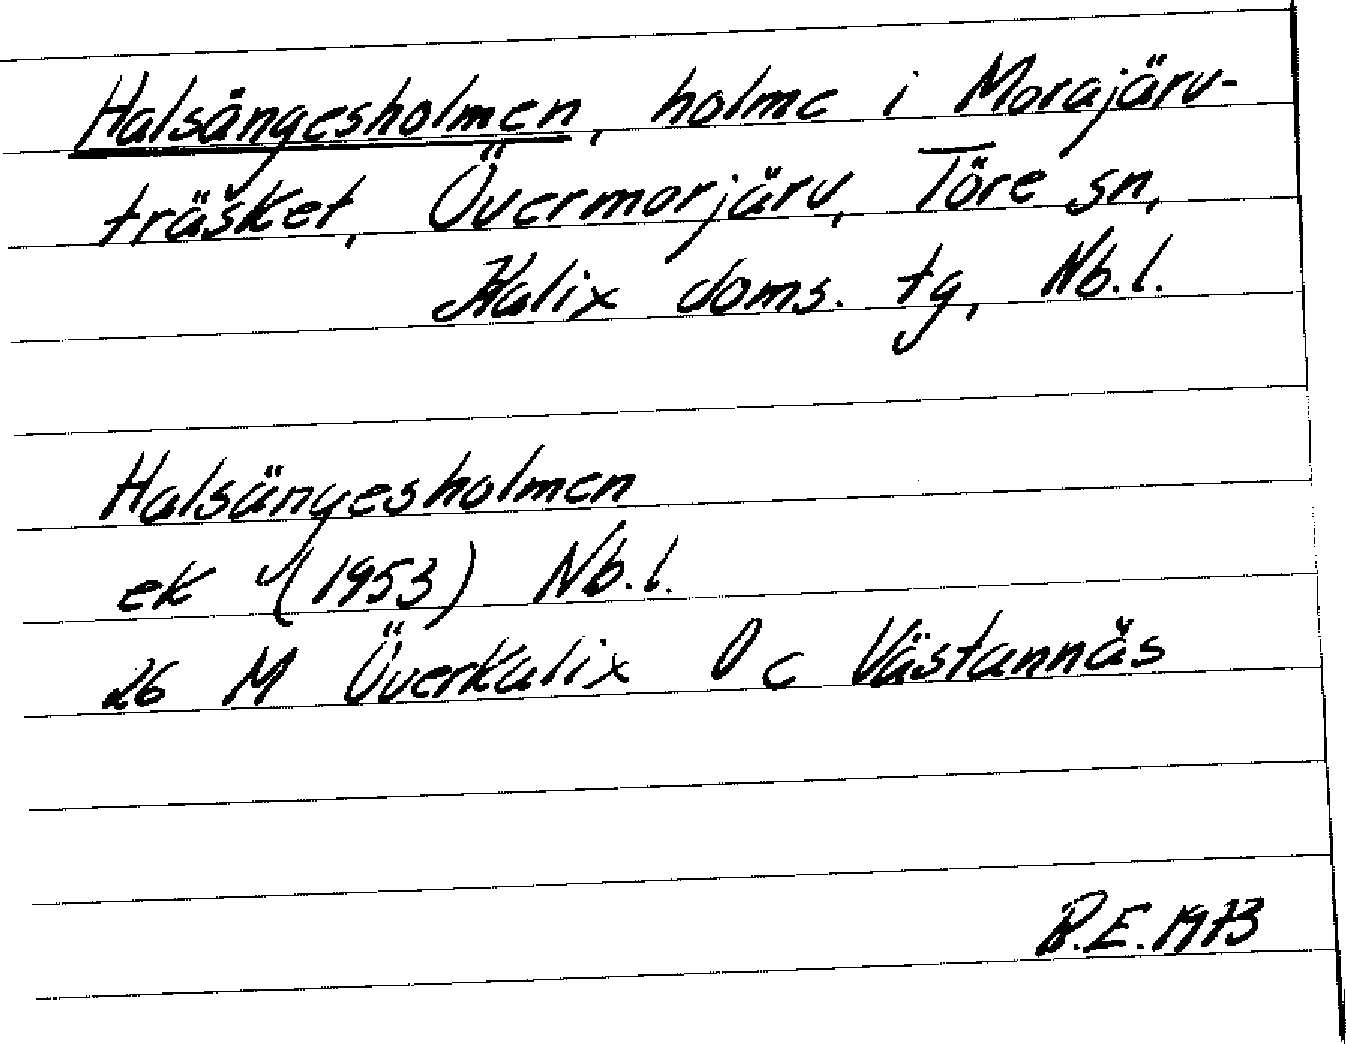 Halsängesholmen, holme i Morajärv-
träsket, Övermorjärv, Töre sn,
Kalix doms. tg, Nb.l.
Halsängesholmen
ek (1953) Nb.l.
26 M Överkalix 0 c Västannäs
B.E. 1973